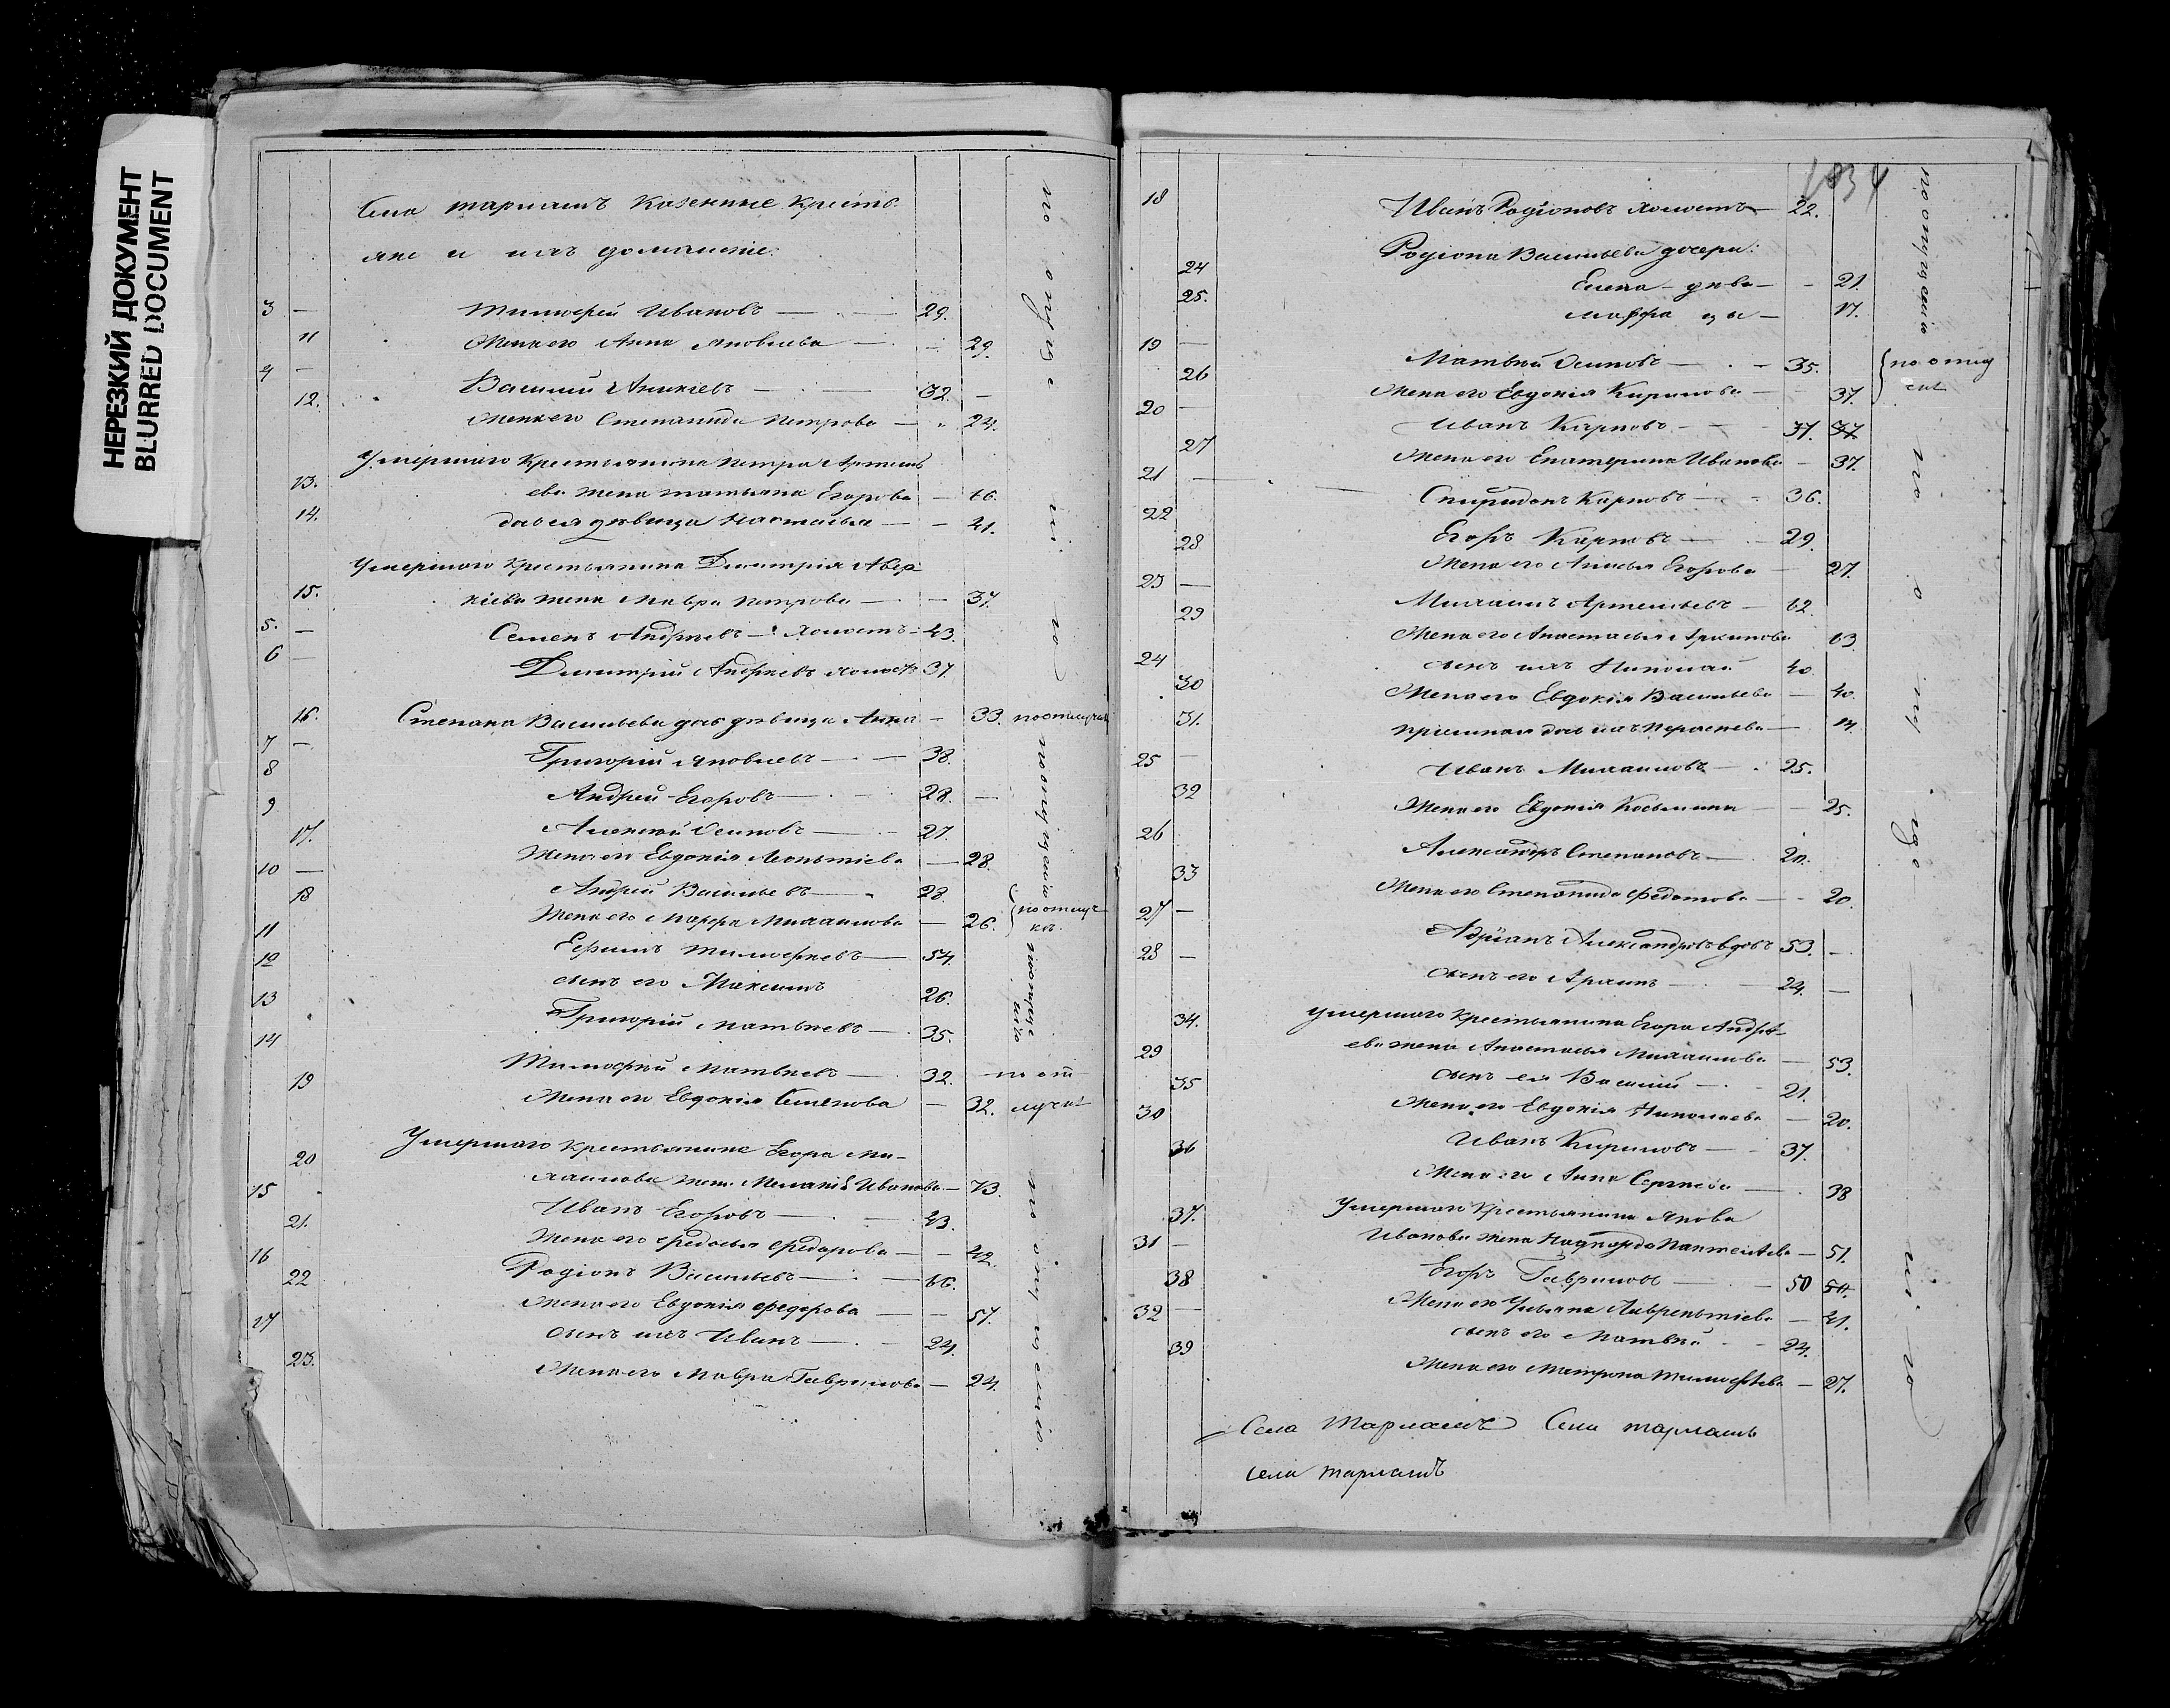 НЕРЕЗКИЙ ДОКУМЕНТ
BLURRED DOCUMENT
Села тармашъ Казенные Кресть
яне и ихъ домашніе.
3 — Тимофей Ивановъ — 29.
11 Жена его Анна Яковлева — 29.
4 — Василий Аникіевъ — 32. —
12. Жена его Степанида Петрова — 24.
Умершаго Крестьянина Петра Артемь
13. ева жена татьяна Егорова — 66.
14. дочь ея девица Настасья — 41.
Умершаго Крестьянина Димитрія Авер
15. кіева жена Мавра Петрова — 37.
5. — Семенъ Андреевъ — холостъ — 43.
6 — Димитрій Андреевъ холостъ 37.
16. Степана Васильева дочь девица Анна — 33. по отлучкѣ
7 — Григорій Яковлевъ — 38.
8 Андрей Егоровъ — 28. —
9 Алексей Осиповъ — 27.
17. Жена его Евдокія Леонтіева — 28.
10 — Андрей Васильевъ — 28.
18 Жена его Марфа Михаилова — 26. по отлуч
кѣ
11 Ефимъ Тимофеевъ — 54.
12 сынъ его Максимъ 26.
13 Григорій Матвеевъ — 35.
14 Тимофей Матвеевъ — 32. — по от
19 Жена его Евдокія Семенова — 32. лучкѣ
20 Умершаго Крестьянина Егора Ми-
хаилова жен. Меланія Иванова — 73.
15 Иванъ Егоровъ — 43.
21. Жена его Федосья Федорова — 42.
16 Родіонъ Васильевъ — 66.
22 Жена его Евдокія Федорова — 57.
17 сынъ ихъ Иванъ — 24.
23. Жена его Мавра Гаврилова — 24.
по опущенію
18 Иванъ Родіоновъ холостъ — 22.
Родіона Васильева дочери:
24 Елена — дѣва — 21.
25. Марфа — 17.
19 — Матвей Осиповъ — 35. по отлуч
26 Жена его Евдокія Кирилова — 37. кѣ
20 — Иванъ Карповъ — 37. 37
27 Жена его Екатерина Иванова — 37.
21 — Спиридонъ Карповъ — 36.
22 Егоръ Карповъ — 29.
28 Жена его Анисья Егорова — 27.
23 — Михаилъ Артемьевъ — 62.
29 Жена его Анастасья Архипова 63.
24 сынъ ихъ Николай 40.
30 Жена его Евдокія Васильева — 40.
31. дочь ихъ —
25 — Иванъ Михаиловъ — 25.
32 Жена его Евдокія Косьмина — 25.
26 Александръ Степановъ —
33 Жена его Степанида Федотова — 20.
27 — Адріанъ Александровъ вдовъ 53. —
28 — сынъ его — 24. —
34. Умершаго Крестьянина Егора Андре-
ева жена Анастасья Михаилова — 53.
29 сынъ ея Василий — 21.
35 Жена его Евдокія Николаева — 20.
30 Иванъ Кириловъ — 37.
36 Жена его Анна Сергеева — 38
37. Умершаго Крестьянина Якова
Иванова жена Пантелеева — 51.
31 — Егоръ Гавриловъ — 50
38 Жена его Ульяна Лаврентіева — 41.
32 — сынъ его Матвей — 24.
39 Жена его Матрона Тимофеева — 27.
Села Тармашъ Села тармашъ
села тармашъ